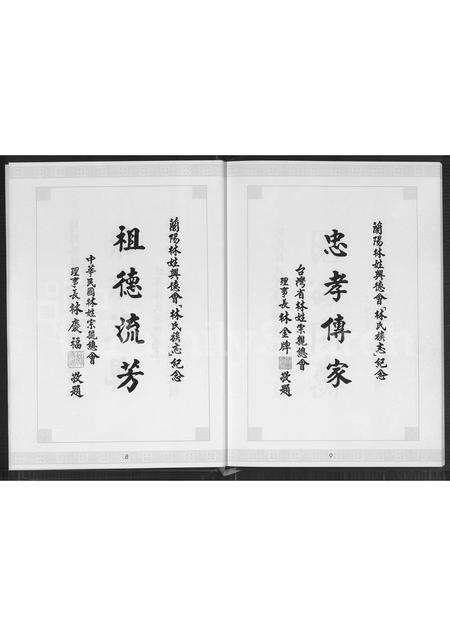 蘭陽林姓興德會「林氏族志」紀念
忠孝傳家
台灣省林姓宗親總會
理事長林金牌
敬題
9
蘭陽林姓興德會「林氏族志」紀念
祖德流芳
中華民國林姓宗親總會
理事長林慶福
敬題
8